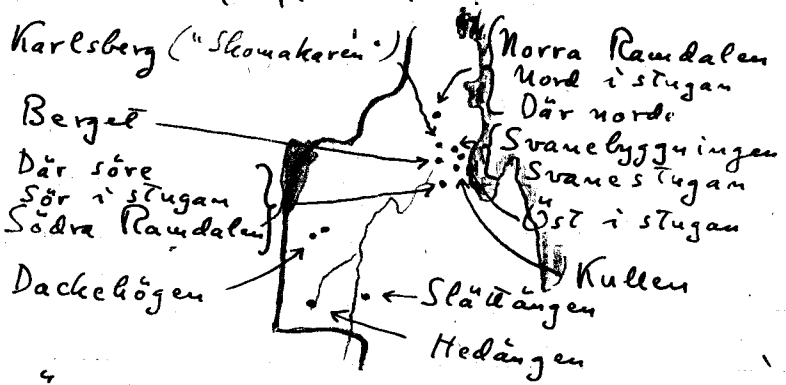 Karlsberg ("Skomakaren")
Berget
Där söre
Sör i stugan
Södra Ramdalen
Dackehögen
Norra Ramdalen
Nord i stugan
Där nordi
Svanebyggningen
Svanestugan
Öst i stugan
Kullen
Slättängen
Hedängen